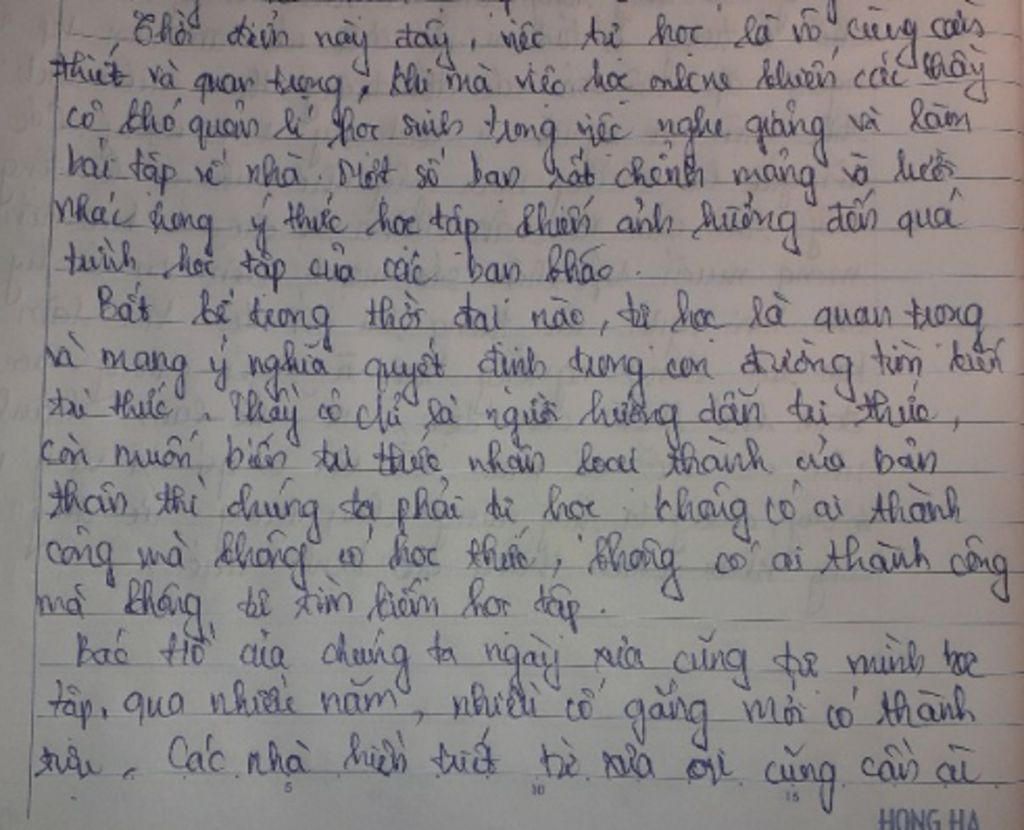 Thời điểm này đây, việc tự học là vô cùng cần
thiết và quan trọng, khi mà việc học online khiến các thầy
cô khó quản lí học sinh trong việc nghe giảng và làm
bài tập về nhà. Một số bạn rất chểnh mảng và lười
nhác trong ý thức học tập khiến ảnh hưởng đến quá
trình học tập của các bạn khác.
Bất kể trong thời đại nào, tự học là quan trọng
và mang ý nghĩa quyết định trong con đường tìm kiến
tri thức. Thầy cô chỉ là người hướng dẫn tri thức,
còn muốn biến tri thức nhân loại thành của bản
thân thì chúng ta phải tự học không có ai thành
công mà không có học thức, không có ai thành công
mà không tự tìm kiếm học tập.
Bác Hồ của chúng ta ngày xưa cũng tự mình học
tập, qua nhiều năm, nhiều cố gắng mới có thành
tựu. Các nhà hiền triết từ xưa cũng cần
5 10 15
HONG HA